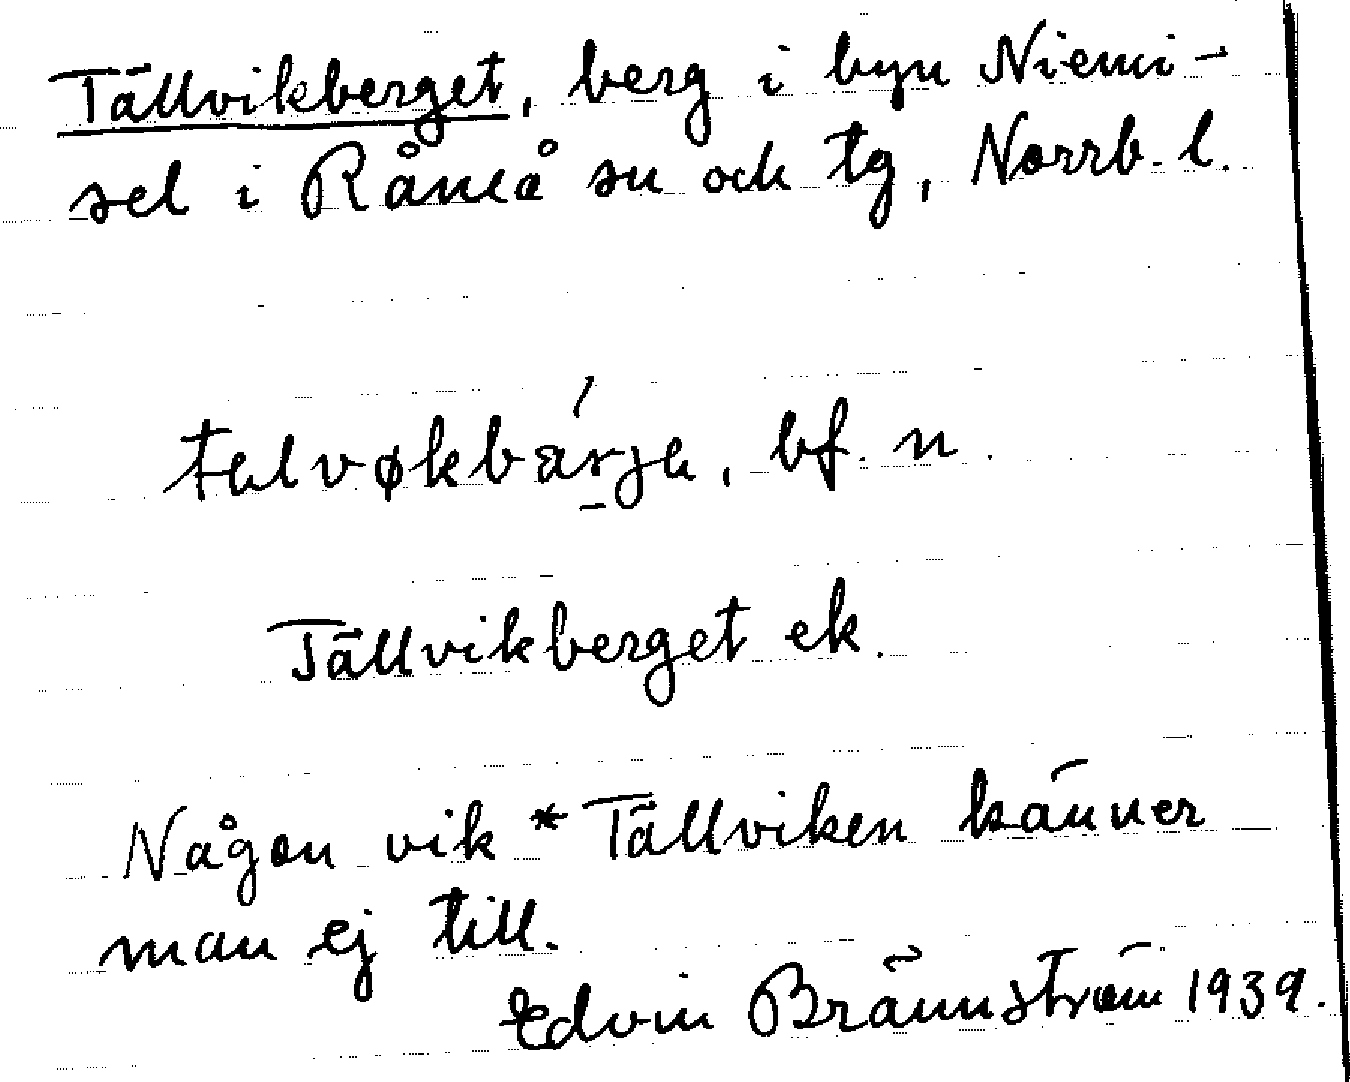 Tällvikberget, berg i byn Niemi-
sel i Råneå sn och tg, Norrb. l.
bf. n.
Tällvikberget ek.
Någon vik *Tällviken känner
man ej till.
Edvin Brännström 1939.